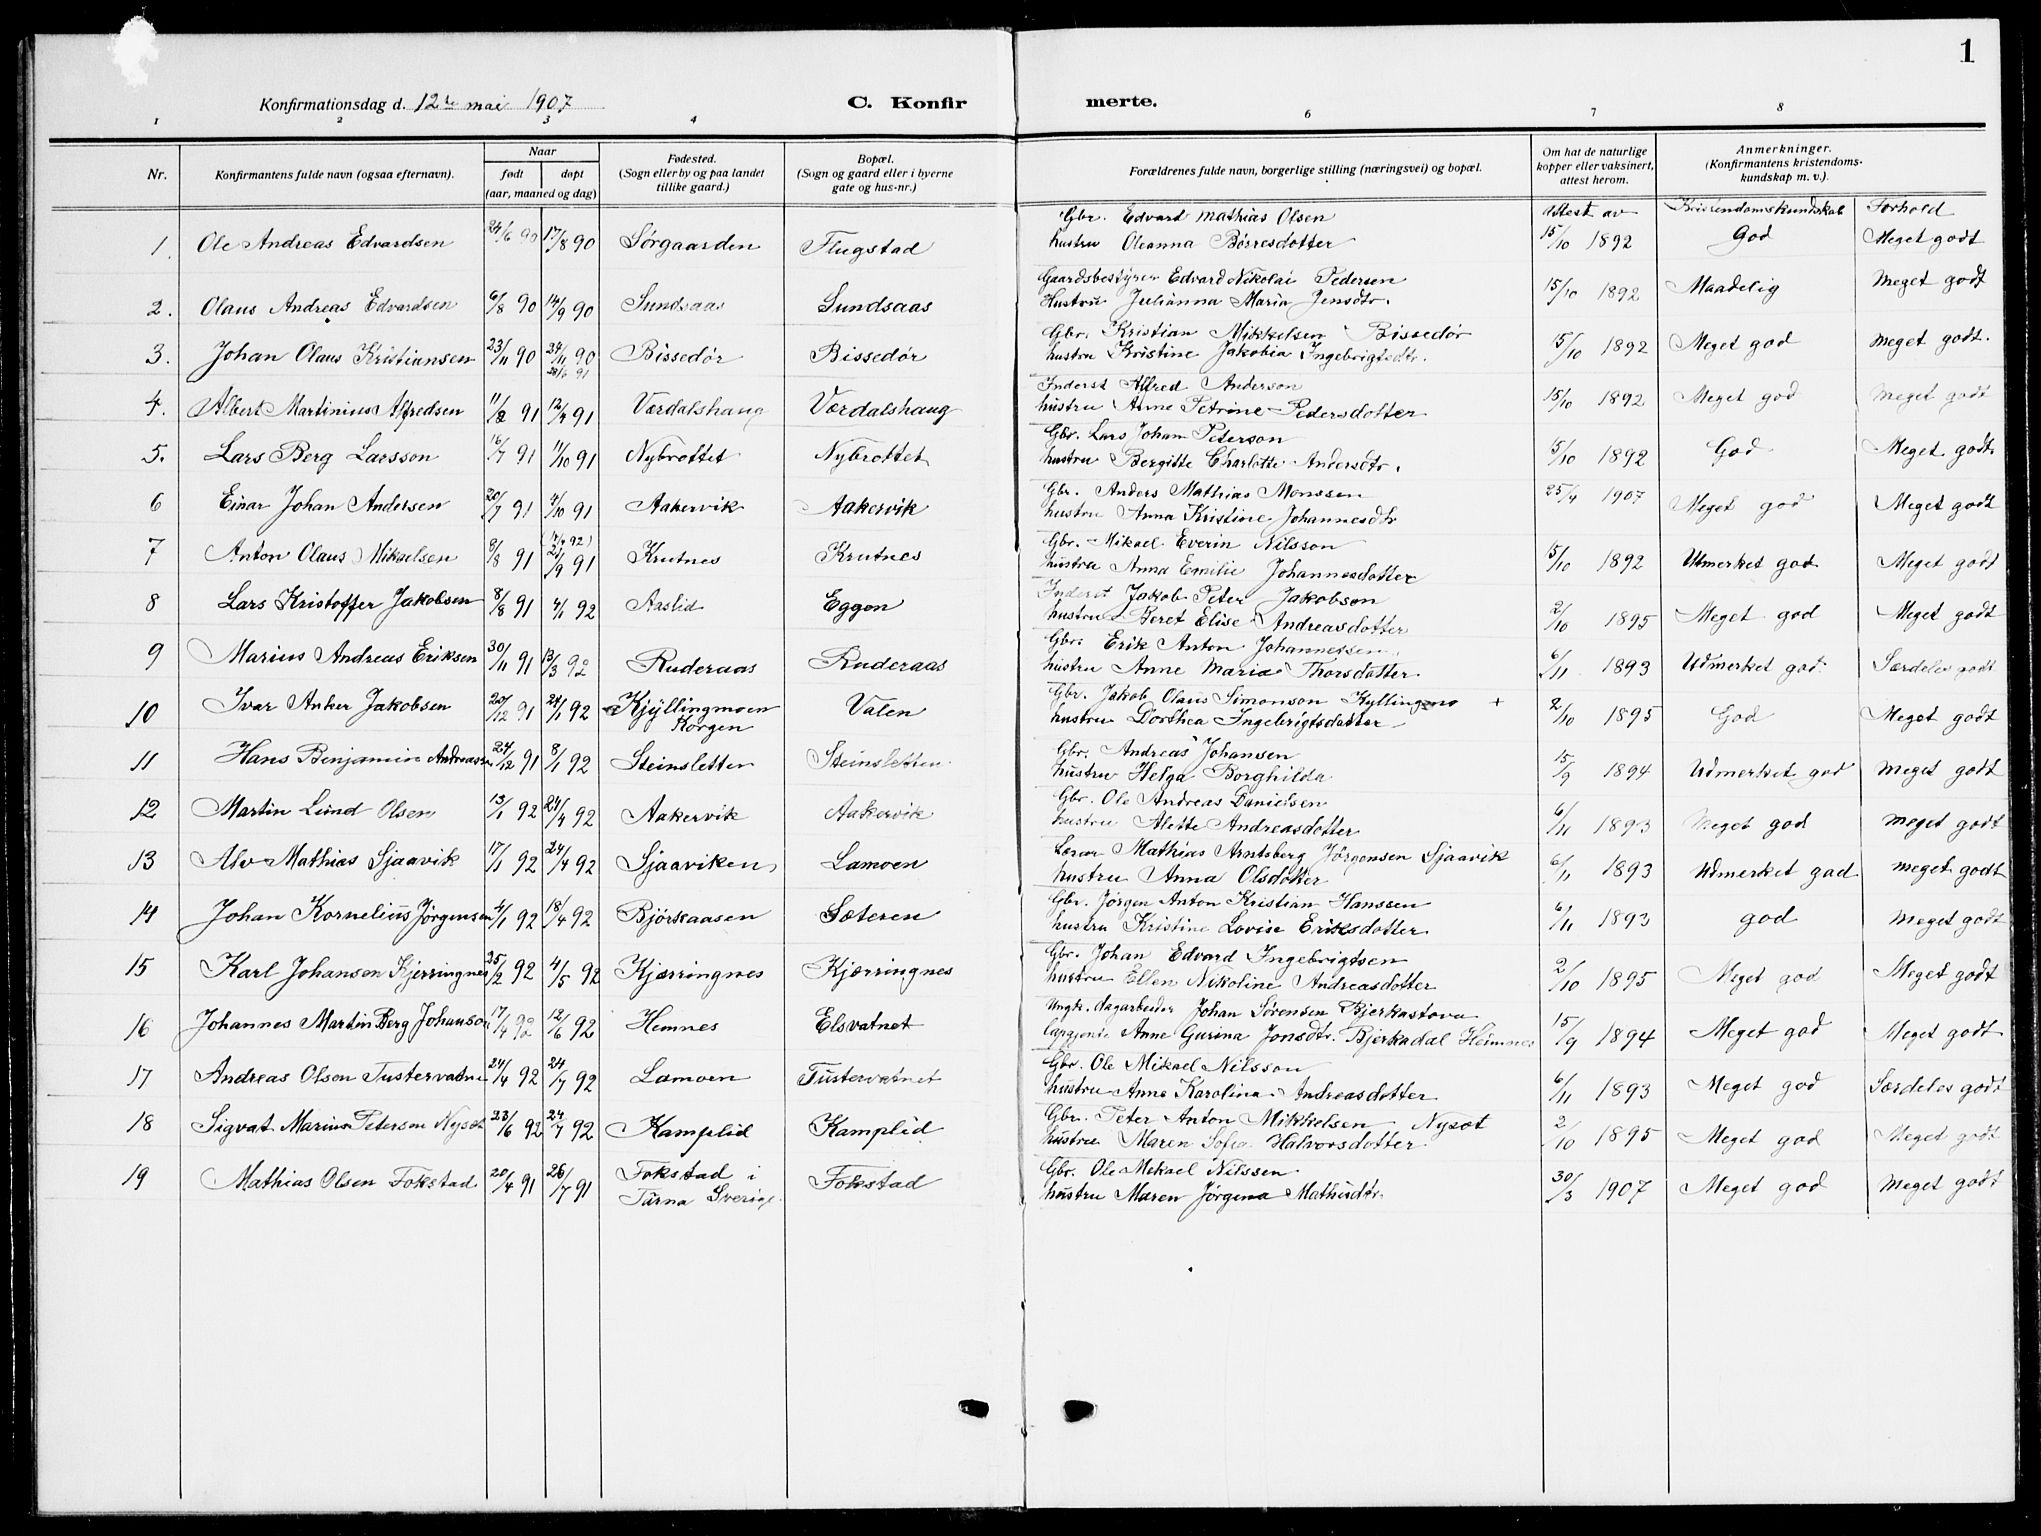 1
Konfirmationsdag d. 12te mai 1907
C. Konfir merte.
1 2 3 4 6 7 8
Nr.
Konfirmantens fulde navn (ogsaa efternavn).
Naar
født døpt
(aar, maaned og dag)
Fødested.
(Sogn eller by og paa landet
tillike gaard.)
Bopæl.
(Sogn og gaard eller i byerne
gate og hus-nr.)
Forældrenes fulde navn, borgerlige stilling (næringsvei) og bopæl.
Om hat de naturlige
kopper eller vaksinert,
attest herom.
Anmerkninger.
(Konfirmantens kristendoms-
kundskap m. v.).
Attest av Kristendomskundskab Forhold
1. Ole Andreas Edvardsen 24/6 90 17/8 90 Sörgaarden Flugstad
Gbr. Edvard Mathias Olsen
hustru Oleanna Börresdotter 15/10 1892 God Meget godt
2. Olaus Andreas Edvardsen 6/8 90 14/9 90 Sundsaas Sundsaas
Gaardsbestyrer Edvard Nikolai Pedersen
Hustru Julianna Maria Jensdtr. 15/10 1892 Maadelig Meget godt
3. Johan Olaus Kristiansen 23/11 90 24/11 90 Bissedör Bissedör
Gbr. Kristian Mikkelsen Bissedör
hustru Kristine Jakobia Ingebrigtsdtr. 15/10 1892 Meget god Meget godt.
4. Albert Martinius Alfredsen 11/2 91 12/4 91 Værdalshaug Værdalshaug
Inderst Alfred Anderson
hustru Anne Petrine Pedersdotter 15/10 1892 Meget god Meget godt
5. Lars Berg Larsson 16/7 91 11/10 91 Nybrottet Nybrottet
Gbr. Lars Johan Peterson
hustru Bergitte Charlotte Andersdtr. 15/10 1892 God Meget godt
6 Einar Johan Andersen 20/7 91 4/10 91 Aakervik Aakervik
Gbr. Anders Mathias Monssen
hustru Anna Kristine Johannesdtr 25/4 1907 Meget god Meget godt
7 Anton Olaus Mikaelsen 8/8 91 21/9 91 Krutnes Krutnes
Gbr. Mikael Everin Nilsson
hustru Anna Emilie Johannesdotter 15/10 1892 Udmerket god Meget godt
8 Lars Kristoffer Jakobsen 8/8 91 4/1 92 Aaslid Eggen
Inderst Jakob Peter Jakobsen
hustru Beret Elise Andreasdotter 2/10 1895 Meget god Meget godt
9 Marius Andreas Eriksen 30/11 91 13/3 92 Ruderaas Ruderaas
Gbr. Erik Anton Johannessen
hustru Anne Maria Thorsdotter 6/11 1893 Udmerket god Særdeles godt
10 Ivar Anker Jakobsen 20/12 91 24/1 92 Kjyllingmoen Korgen Valen
Gbr. Jakob Olaus Simonson Kyllingmo +
hustru Dorthea Ingebrigtsdatter 2/10 1895 God Meget godt
11 Hans Benjamin Andreassen 24/12 91 8/1 92 Steinsletten Steinsletten
Gbr. Andreas Johansen
hustru Helga Borghilda 15/9 1894 Udmerket god Meget godt
12 Martin Lund Olsen 13/1 92 24/4 92 Aakervik Aakervik
Gbr. Ole Andreas Danielsen
hustru Alette Andreasdotter 6/11 1893 Meget god Meget godt
13 Alv Mathias Sjaavik 17/1 92 24/4 92 Sjaaviken Lamoen
Lærer Mathias Arntsberg Jörgensen Sjaavik
hustru Anna Olsdotter 6/11 1893 Udmerket god Meget godt
14 Johan Kornelius Jörgensen 4/1 92 18/4 92 Björkaasen Sæteren
Gbr. Jörgen Anton Kristian Hanssen
hustru Kristine Lovise Eriksdotter 6/11 1893 god Meget godt
15 Karl Johansen Kjerringnes 25/2 92 4/5 92 Kjærringnes Kjærringnes
Gbr. Johan Edvard Ingebrigtsen
hustru Ellen Nikoline Andreasdotter 2/10 1895 Meget god Meget godt
16 Johannes Martin Berg Johanson 17/4 92 12/6 92 Hemnes Elsvatnet
Ungk. dagarbeider Johan Sörensen Bjerkastova
Anne Gurina Jonsdtr. Bjerkadal Heimnes 15/9 1894 Meget god Meget godt
17 Andreas Olsen Tustervatne 24/4 92 24/7 92 Lamoen Tustervatnet
Gbr. Ole Mikael Nilsson
hustru Anne Karolina Andreasdotter 6/11 1893 Meget god Særdeles godt
18 Sigvat Marius Peterson Nysæt 23/6 92 24/7 92 Kamplid Kamplid
Gbr. Peter Anton Mikkelsen Nysæt
hustru Maren Sofia Halvorsdotter 2/10 1895 Meget god Meget godt
19 Mathias Olsen Fokstad 20/4 91 26/7 91 Fokstad i Tärna Sverige Fokstad
Gbr. Ole Mikael Nilssen
hustru Maren Jörgina Mathisdtr. 30/3 1907 Meget god Meget godt